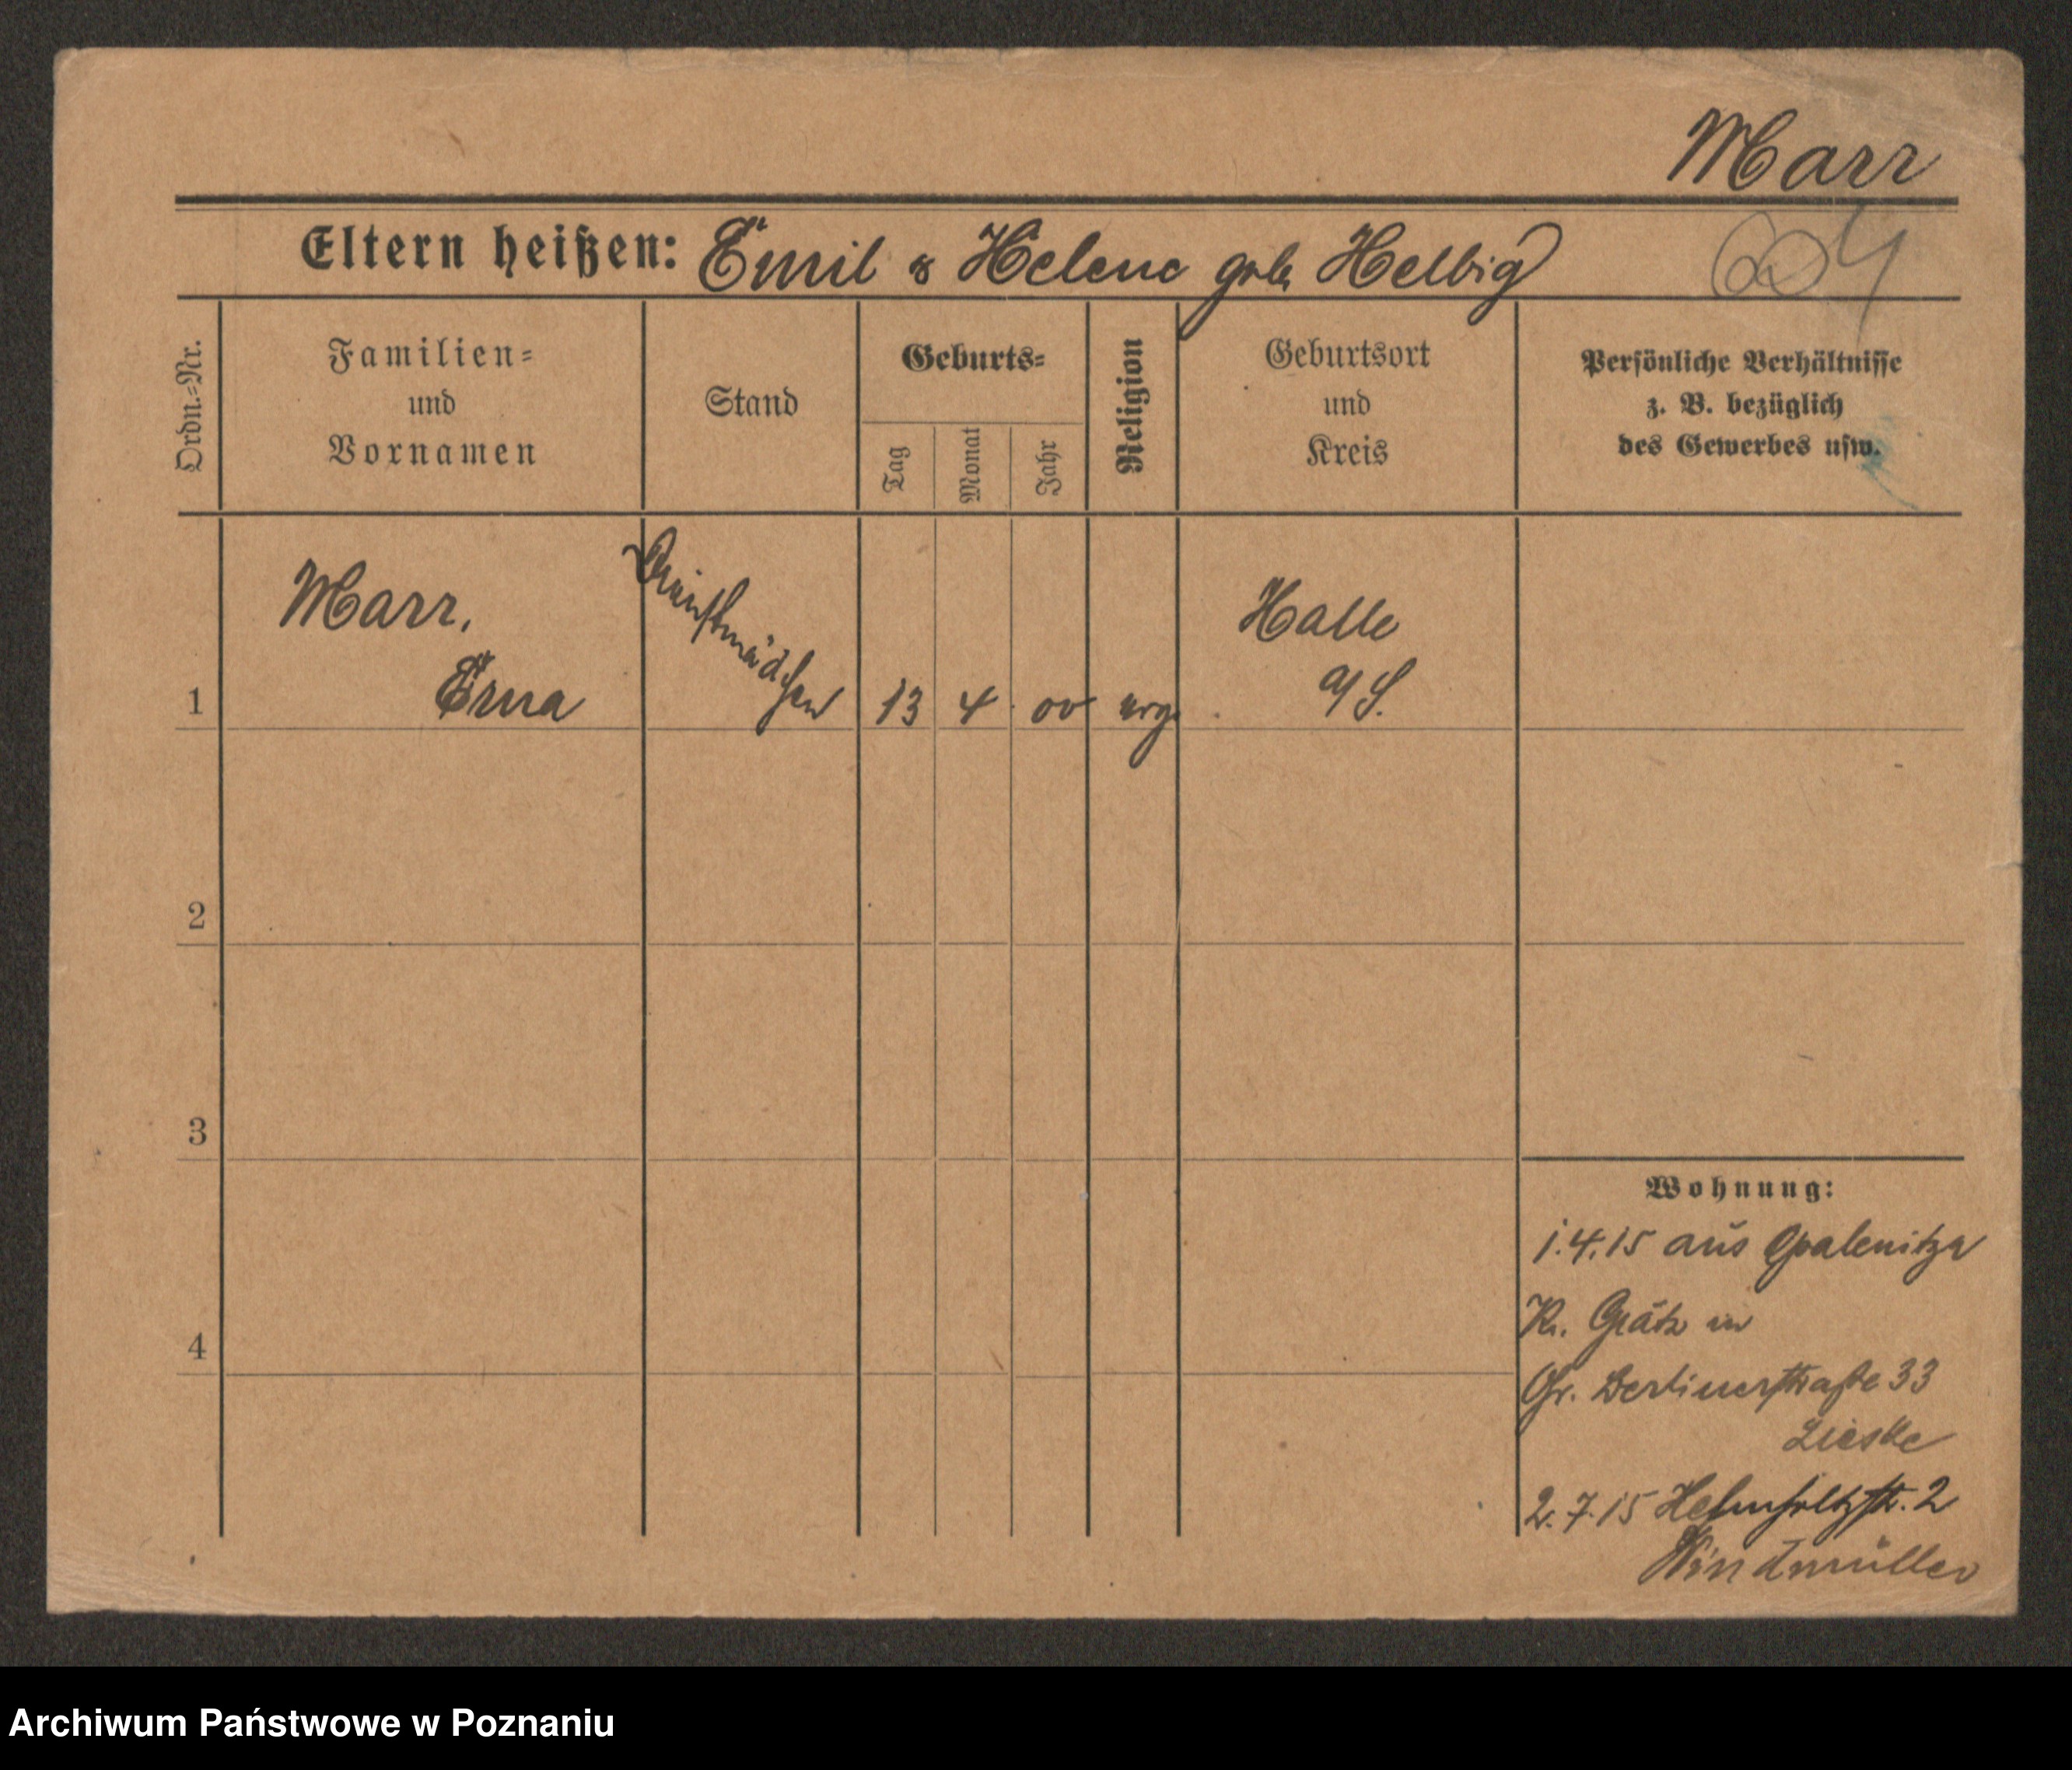 Marr
Eltern heißen: Emil & Helene geb. Helbig
604
Ordn.=Nr.
Familien=
und
Vornamen
Stand
Geburts=
Tag
Monat
Jahr
Religion
Geburtsort
und
Kreis
Persönliche Verhältnisse
z. B. bezüglich
des Gewerbes usw.
1
Marr,
Erna
Dienstmädchen
13
4
00
evg.
Halle
a/S.
2
3
4
Wohnung:
1.4.15 aus Opalenitza
Kr. Grätz in
Gr. Berlinerstraße 33
Lieske
2.7.15 Helmholtzstr. 2
Windmüller
Archiwum Państwowe w Poznaniu